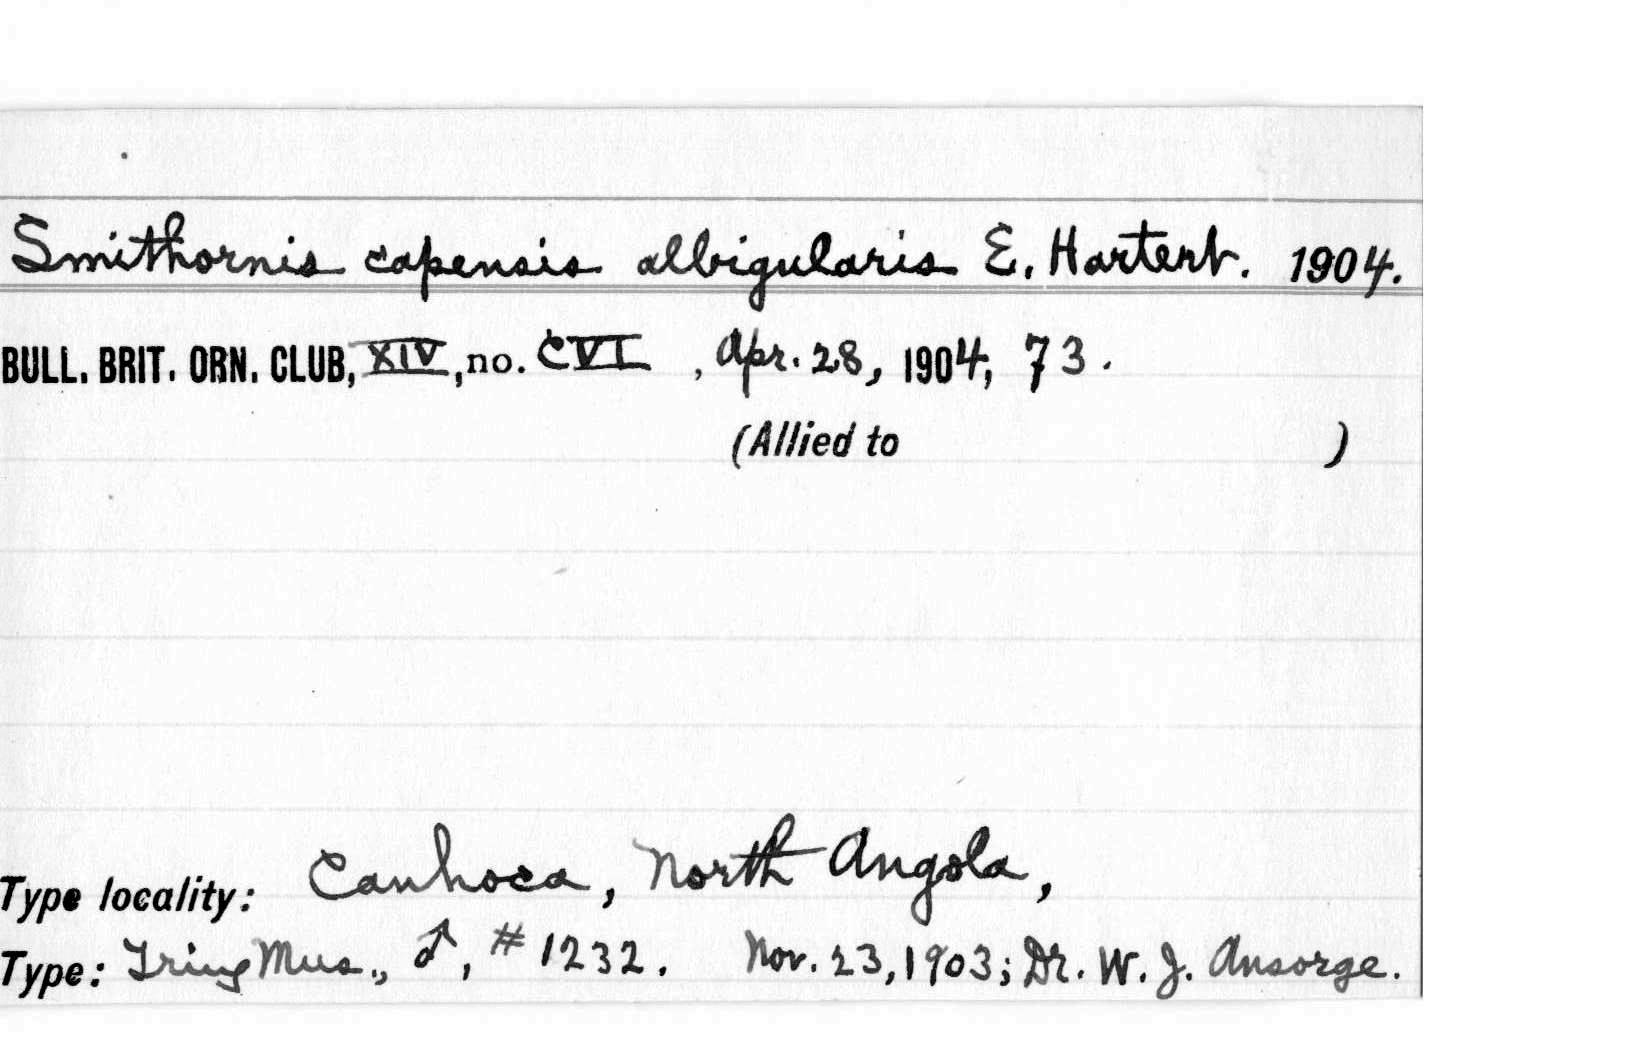 Smithornis capensis albigularis E. Hartert. 1904.
BULL. BRIT. ORN. CLUB, XIV, no. CVI , Apr. 28, 1904, 73.
(Allied to )
Type locality: Canhoca, North Angola,
Type: Tring Mus., ♂, # 1232. Nov. 23, 1903; Dr. W. J. Ansorge.